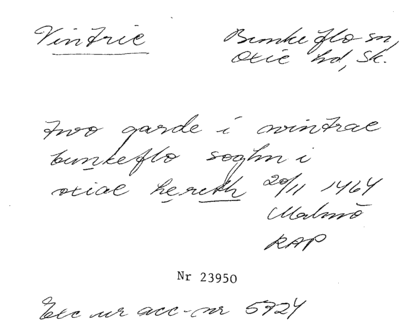 Vintrie
Bunkeflo sn,
Oxie hd, Sk.
two garde i wintrae
bunkeflo soghn i
oxiae hereth 20/11 1464
Malmö
RAP
Nr 23950
Exc ur acc-nr 5724